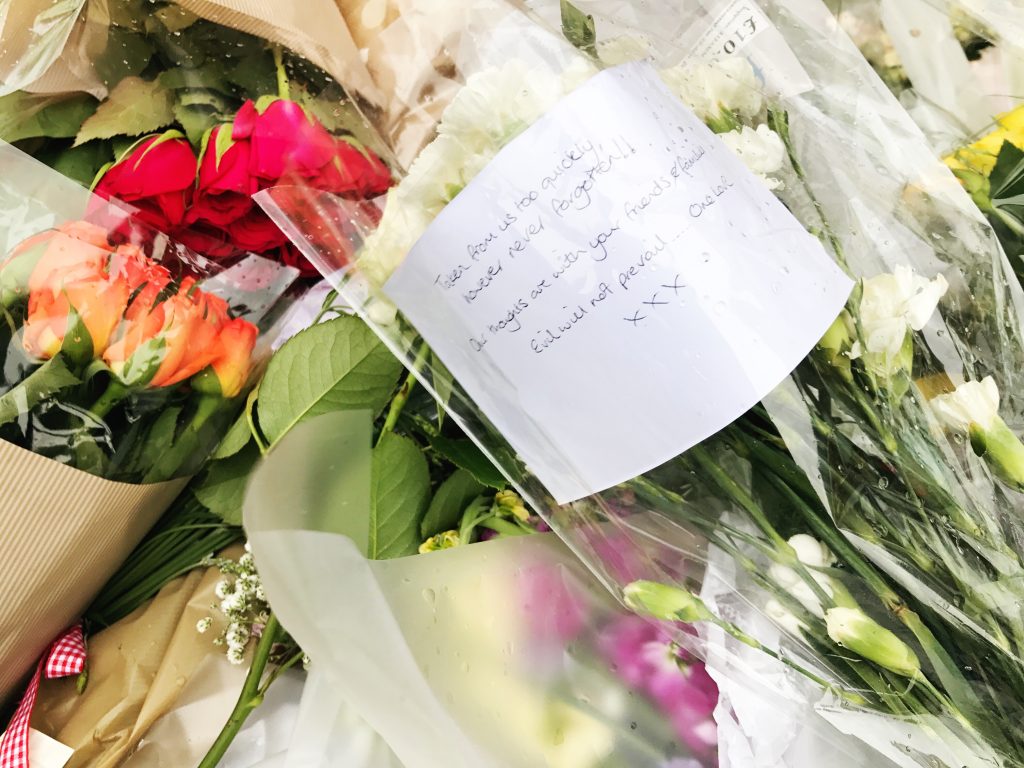 £10
Taken from us too quickly,
however never forgotten!!
Our thoughts are with your friends & families
Evil will not prevail ........ One Love
x x x